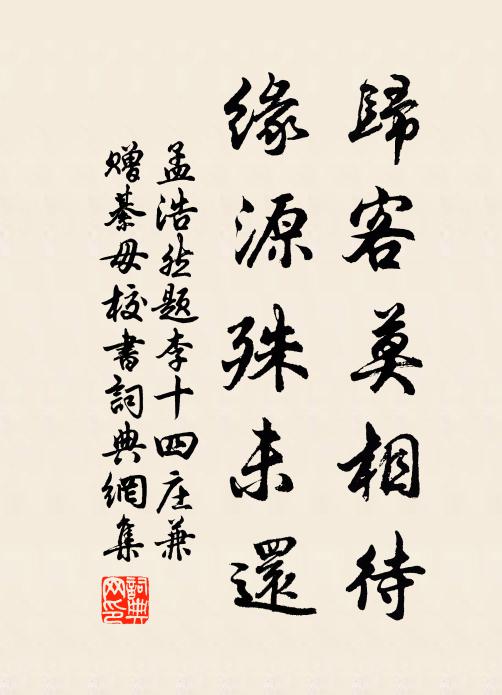 歸客莫相待
緣源殊未還
孟浩然題李十四庄兼
贈綦毋校書詞典網集
詞典网印